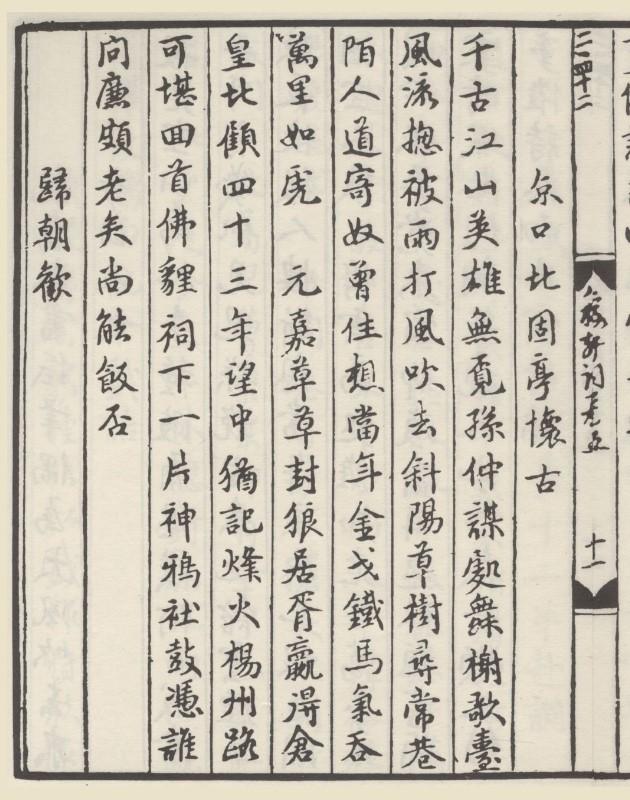 二一四十二
稼軒詞卷五
十一
京口北固亭懷古
千古江山英雄無覓孫仲謀處舞榭歌臺
風流揔被雨打風吹去斜陽草樹尋常巷
陌人道寄奴曾住想當年金戈鐵馬氣吞
萬里如虎　元嘉草草封狼居胥贏得倉
皇北顧四十三年望中猶記烽火楊州路
可堪回首佛貍祠下一片神鴉社鼓憑誰
問廉頗老矣尚能飯否
歸朝歡